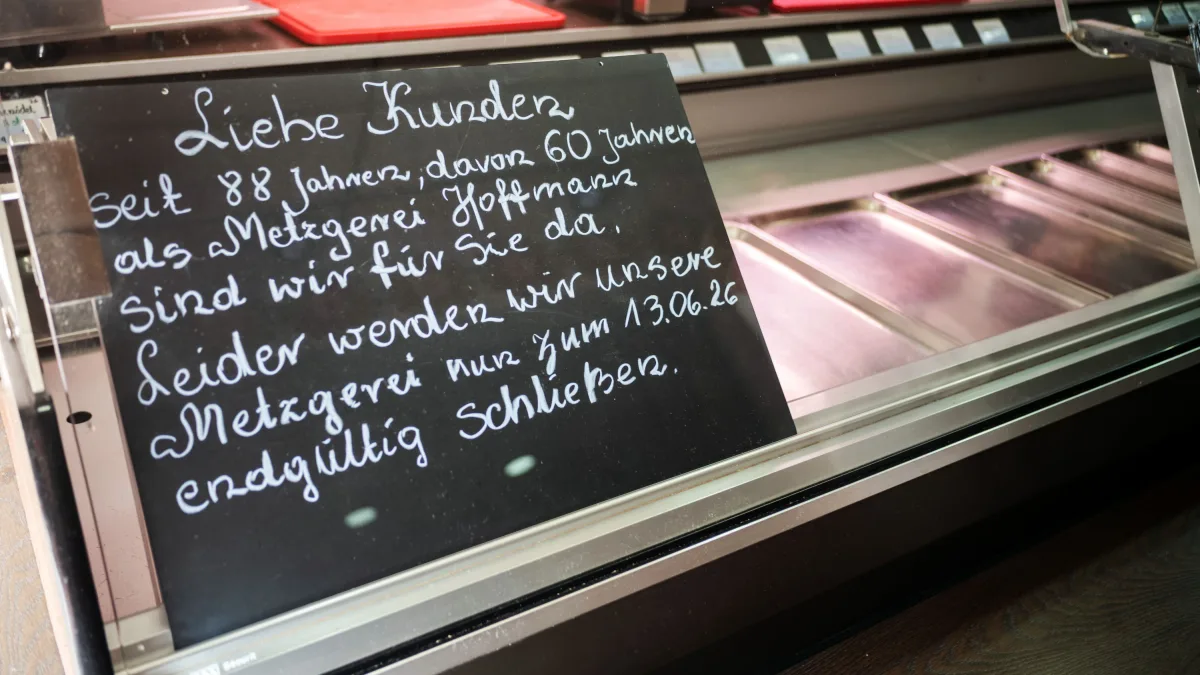 Liebe Kunden
seit 88 Jahren, davon 60 Jahren
als Metzgerei Hoffmann
sind wir für Sie da.
Leider werden wir unsere
Metzgerei nun zum 13.06.26
endgültig schließen.
Securit